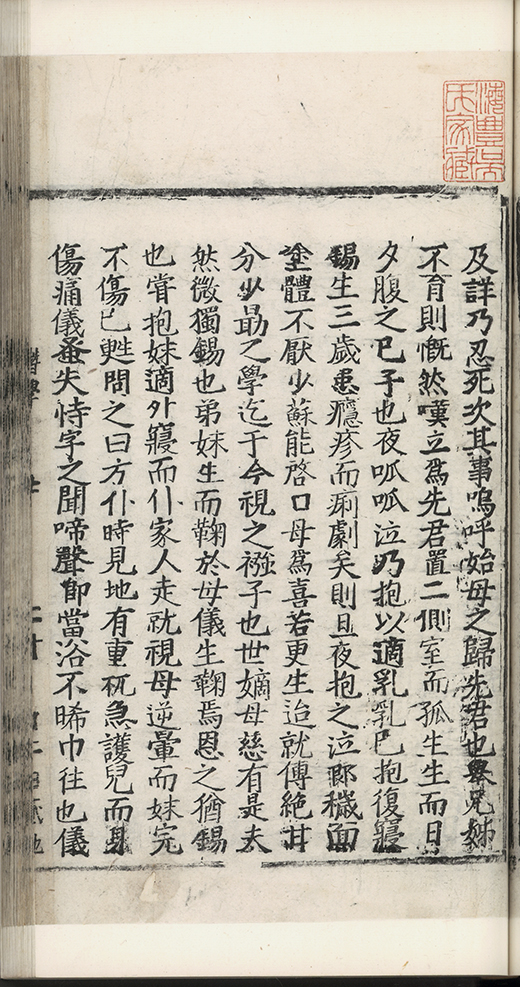 及詳乃忍死次其事嗚呼始母之歸先君也舉兄姊
不育則慨然嘆立為先君置二側室而孤生生而日
夕腹之巳子也夜呱呱泣乃抱以適乳乳巳抱復寢
錫生三歲患癮疹而痢劇矣則旦夜抱之泣郎穢面
塗體不厭少蘇能啓口母爲喜若更生迨就傅絶甘
分少勗之學迄于今視之襁子也世嫡母慈有是夫
然微獨錫也弟妹生而鞠於母儀生鞠焉恩之猶錫
也甞抱妹適外寢而仆家人走就視母逆暈而妹完
不傷巳甦問之曰方仆時見地有重杌急護兒而身
傷痛儀蚤失恃字之聞啼聲卽當浴不晞巾往也儀
海豐吳氏家藏